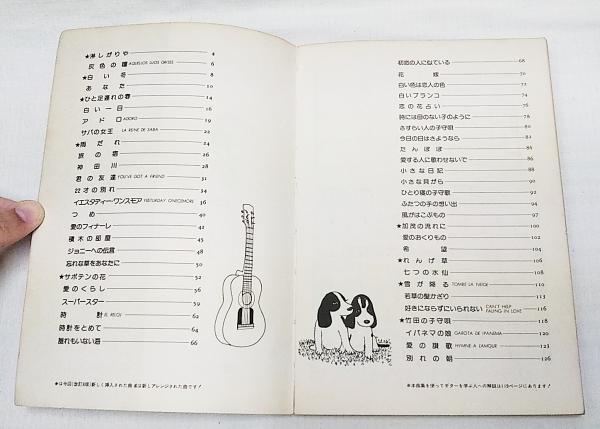 ★淋しがりや 4
灰色の瞳 AQUELLOS OJOS GRISES 6
★白い冬 8
あなた 10
★ひと足遅れの春 14
白い一日 16
アドロ ADORO 19
サバの女王 LA REINE DE SABA 22
★雨だれ 24
旅の宿 26
神田川 28
君の友達 YOU'VE GOT A FRIEND 31
22才の別れ 34
イエスタデイ・ワンスモア YESTERDAY ONCE MORE 36
つめ 40
愛のフィナーレ 42
積木の部屋 45
ジョニーへの伝言 48
忘れな草をあなたに 50
★サボテンの花 52
愛のくらし 56
スーパースター 59
時計 EL RELOJ 62
時計をとめて 64
誰もいない海 66
★は今回(改訂8版)新しく挿入された曲または新しくアレンジされた曲です！
初恋の人に似ている 68
花嫁 70
白い色は恋人の色 72
白いブランコ 74
恋の花占い 76
時には母のない子のように 78
さすらい人の子守唄 80
今日の日はさようなら 82
たんぽぽ 84
愛する人に歌わせないで 86
小さな日記 88
小さな貝がら 90
ひとり寝の子守歌 92
ふたつの手の想い出 94
風がはこぶもの 97
★加茂の流れに 100
愛のおくりもの 102
希望 104
★れんげ草 106
七つの水仙 108
★雪が降る TOMBE LA NEIGE 110
若草の髪かざり 113
好きにならずにいられない CAN'T HELP FALLING IN LOVE 115
★竹田の子守唄 116
イパネマの娘 GAROTA DE IPANEMA 120
愛の讃歌 HYMNE A L'AMOUR 123
別れの朝 126
＊本曲集を使ってギターを学ぶ人への解説は119ページにあります！